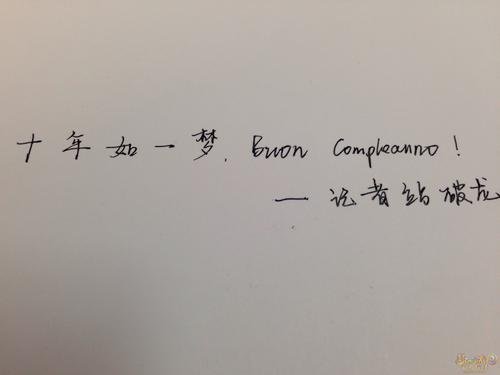 十年如一梦. Buon Compleanno!
— 记者站破龙